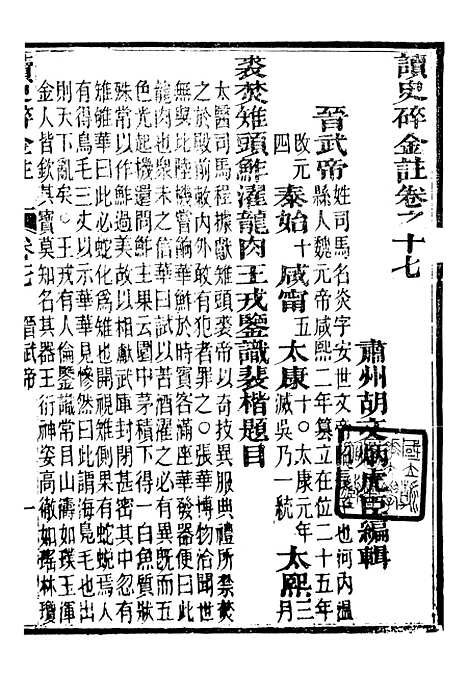 讀史碎金註卷之十七
肅州胡文炳虎臣編輯
晉武帝 姓司馬名炎字安世文帝昭長子也河內溫
縣人魏元帝咸熙二年篡立在位二十五年
改元四 泰始十 咸甯五 太康十○太康元年三月滅吳乃一統 太熙
裘焚雉頭鮓濯龍肉王戎鑒識裴楷題目
太醫司馬程據獻雉頭裘帝以奇技異服典禮所禁焚
之於殿前敕內外敢有犯者罪之○張華博物洽聞世
無與比陸機嘗餉華鮓于時賓客滿座華發器便曰此
龍肉也衆未之信華曰試以苦酒濯之必有異旣而五
色光起機還問鮓主果云園中茅積下得一白魚質狀
殊常以作鮓過美故以相獻武庫封閉甚密其中忽有
雉雊華曰此必蛇化爲雉也開視雉側果有蛇蛻焉人
有得鳥毛三丈以示華華見慘然曰此謂海鳧毛也出
則天下亂矣○王戎有人倫鑒識常目山濤如璞玉渾
金人皆欽其寶莫知名其器王衍神姿高徹如瑤林瓊
讀史碎金註 卷十七 晉武帝 一